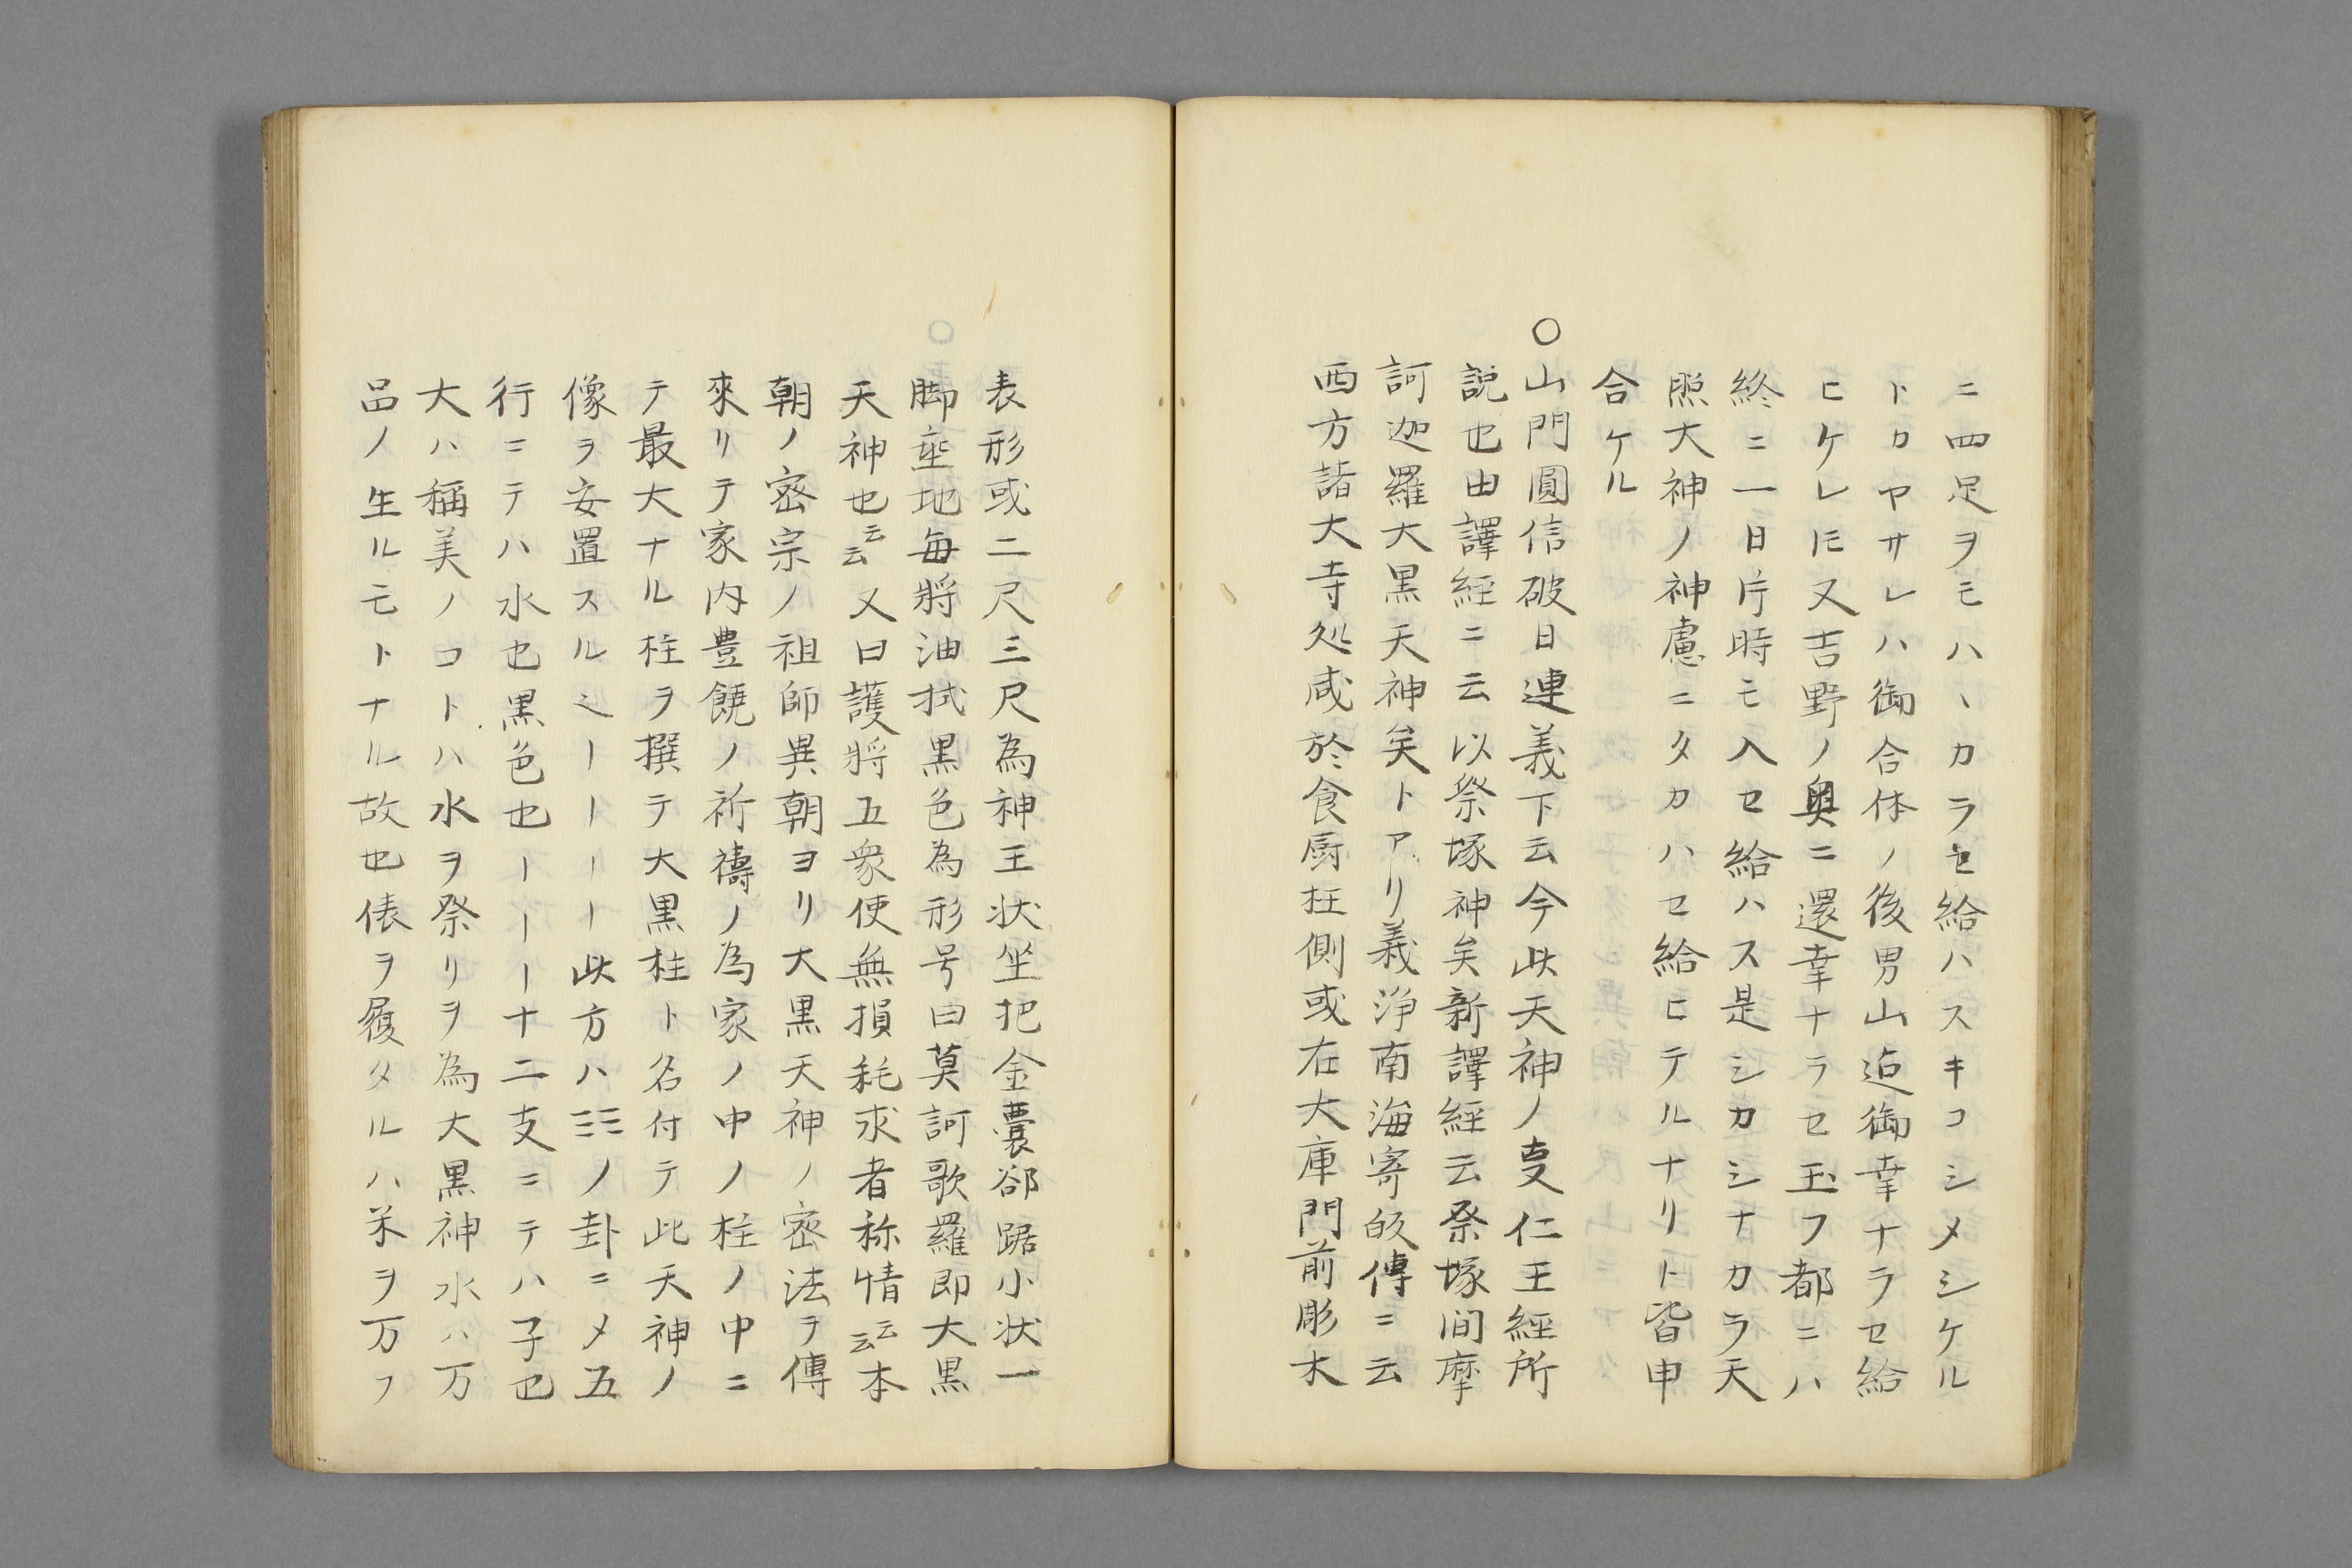 ニ四足ヲモハヽカラセ給ハスキコシメシケル
トカヤサレハ御合体ノ後男山迠御幸ナラセ給
ヒケレ𪜈又吉野ノ奥ニ還幸ナラセ玉フ都ニハ
終ニ一日片時モ入セ給ハス是シカシナカラ天
照大神ノ神慮ニタカハセ給ヒテルナリト皆申
合ケル
○山門圓信破日連義下云今此天神ノ㕝仁王經所
説也由譯經ニ云以祭塚神矣新譯經云祭塚间摩
訶迦羅大黒天神矣トアリ義浄南海寄皈傳ニ云
西方諸大寺処咸於食厨柱側或在大庫門前彫木
表形或二尺三尺為神王状坐把金嚢郤踞小状一
脚垂地毎將油拭黒色為形号曰莫訶歌羅即大黒
天神也云云又曰護將五衆使無損耗求者称情云云本
朝ノ宻宗ノ祖師異朝ヨリ大黒天神ノ宻法ヲ傳
來リテ家内豊饒ノ祈禱ノ為家ノ中ノ柱ノ中ニ
テ最大ナル柱ヲ撰テ大黒柱ト名付テ此天神ノ
像ヲ安置スル也ーーーー此方ハ☵ノ卦ニメ五
行ニテハ水也黒色也ーーー十二支ニテハ子也
大ハ稱美ノコトハ水ヲ祭リヲ為大黒神水ハ万
品ノ生ルモトナル故也俵ヲ履タルハ米ヲ万フ